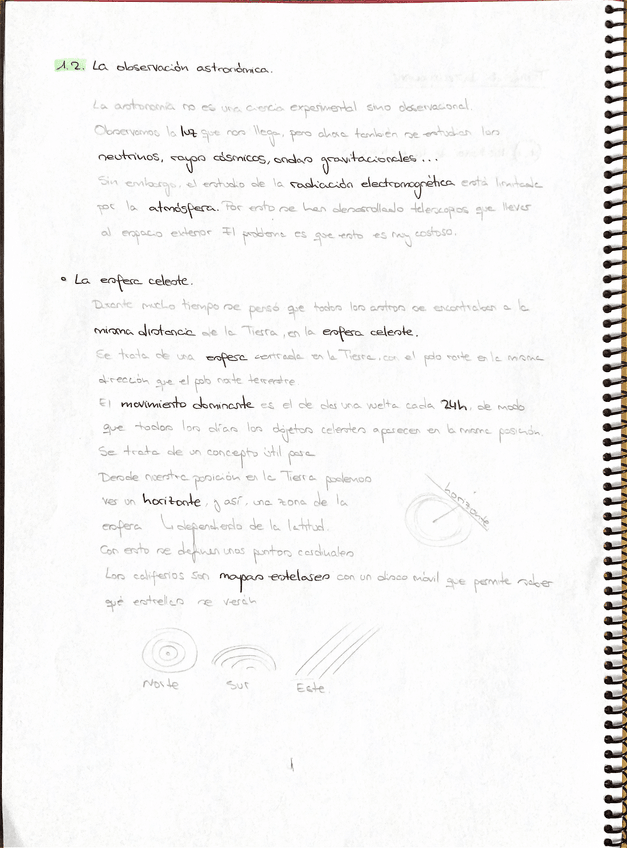 1.2. La observación astronómica.
La astronomía no es una ciencia experimental sino observacional.
Observamos la luz que nos llega, pero ahora también se estudian los
neutrinos, rayos cósmicos, ondas gravitacionales...
Sin embargo, el estudio de la radiación electromagnética está limitada
por la atmósfera. Por esto se han desarrollado telescopios que llevar
al espacio exterior. El problema es que esto es muy costoso.
• La esfera celeste.
Durante mucho tiempo se pensó que todos los astros se encontraban a la
misma distancia de la Tierra, en la esfera celeste.
Se trata de una esfera centrada en la Tierra, con el polo norte en la misma
dirección que el polo norte terrestre
El movimiento dominante es el de dar una vuelta cada 24h, de modo
que todos los días los objetos celestes aparecen en la misma posición.
Se trata de un concepto útil para
Desde nuestra posición en la Tierra podemos
ver un horizonte, y así, una zona de la
esfera ↳ dependiendo de la latitud.
horizonte
Con esto se definen unos puntos cardinales
Los califerios son mapas estelases con un disco móvil que permite saber
qué estrellas se verán
Norte Sur Este.
1